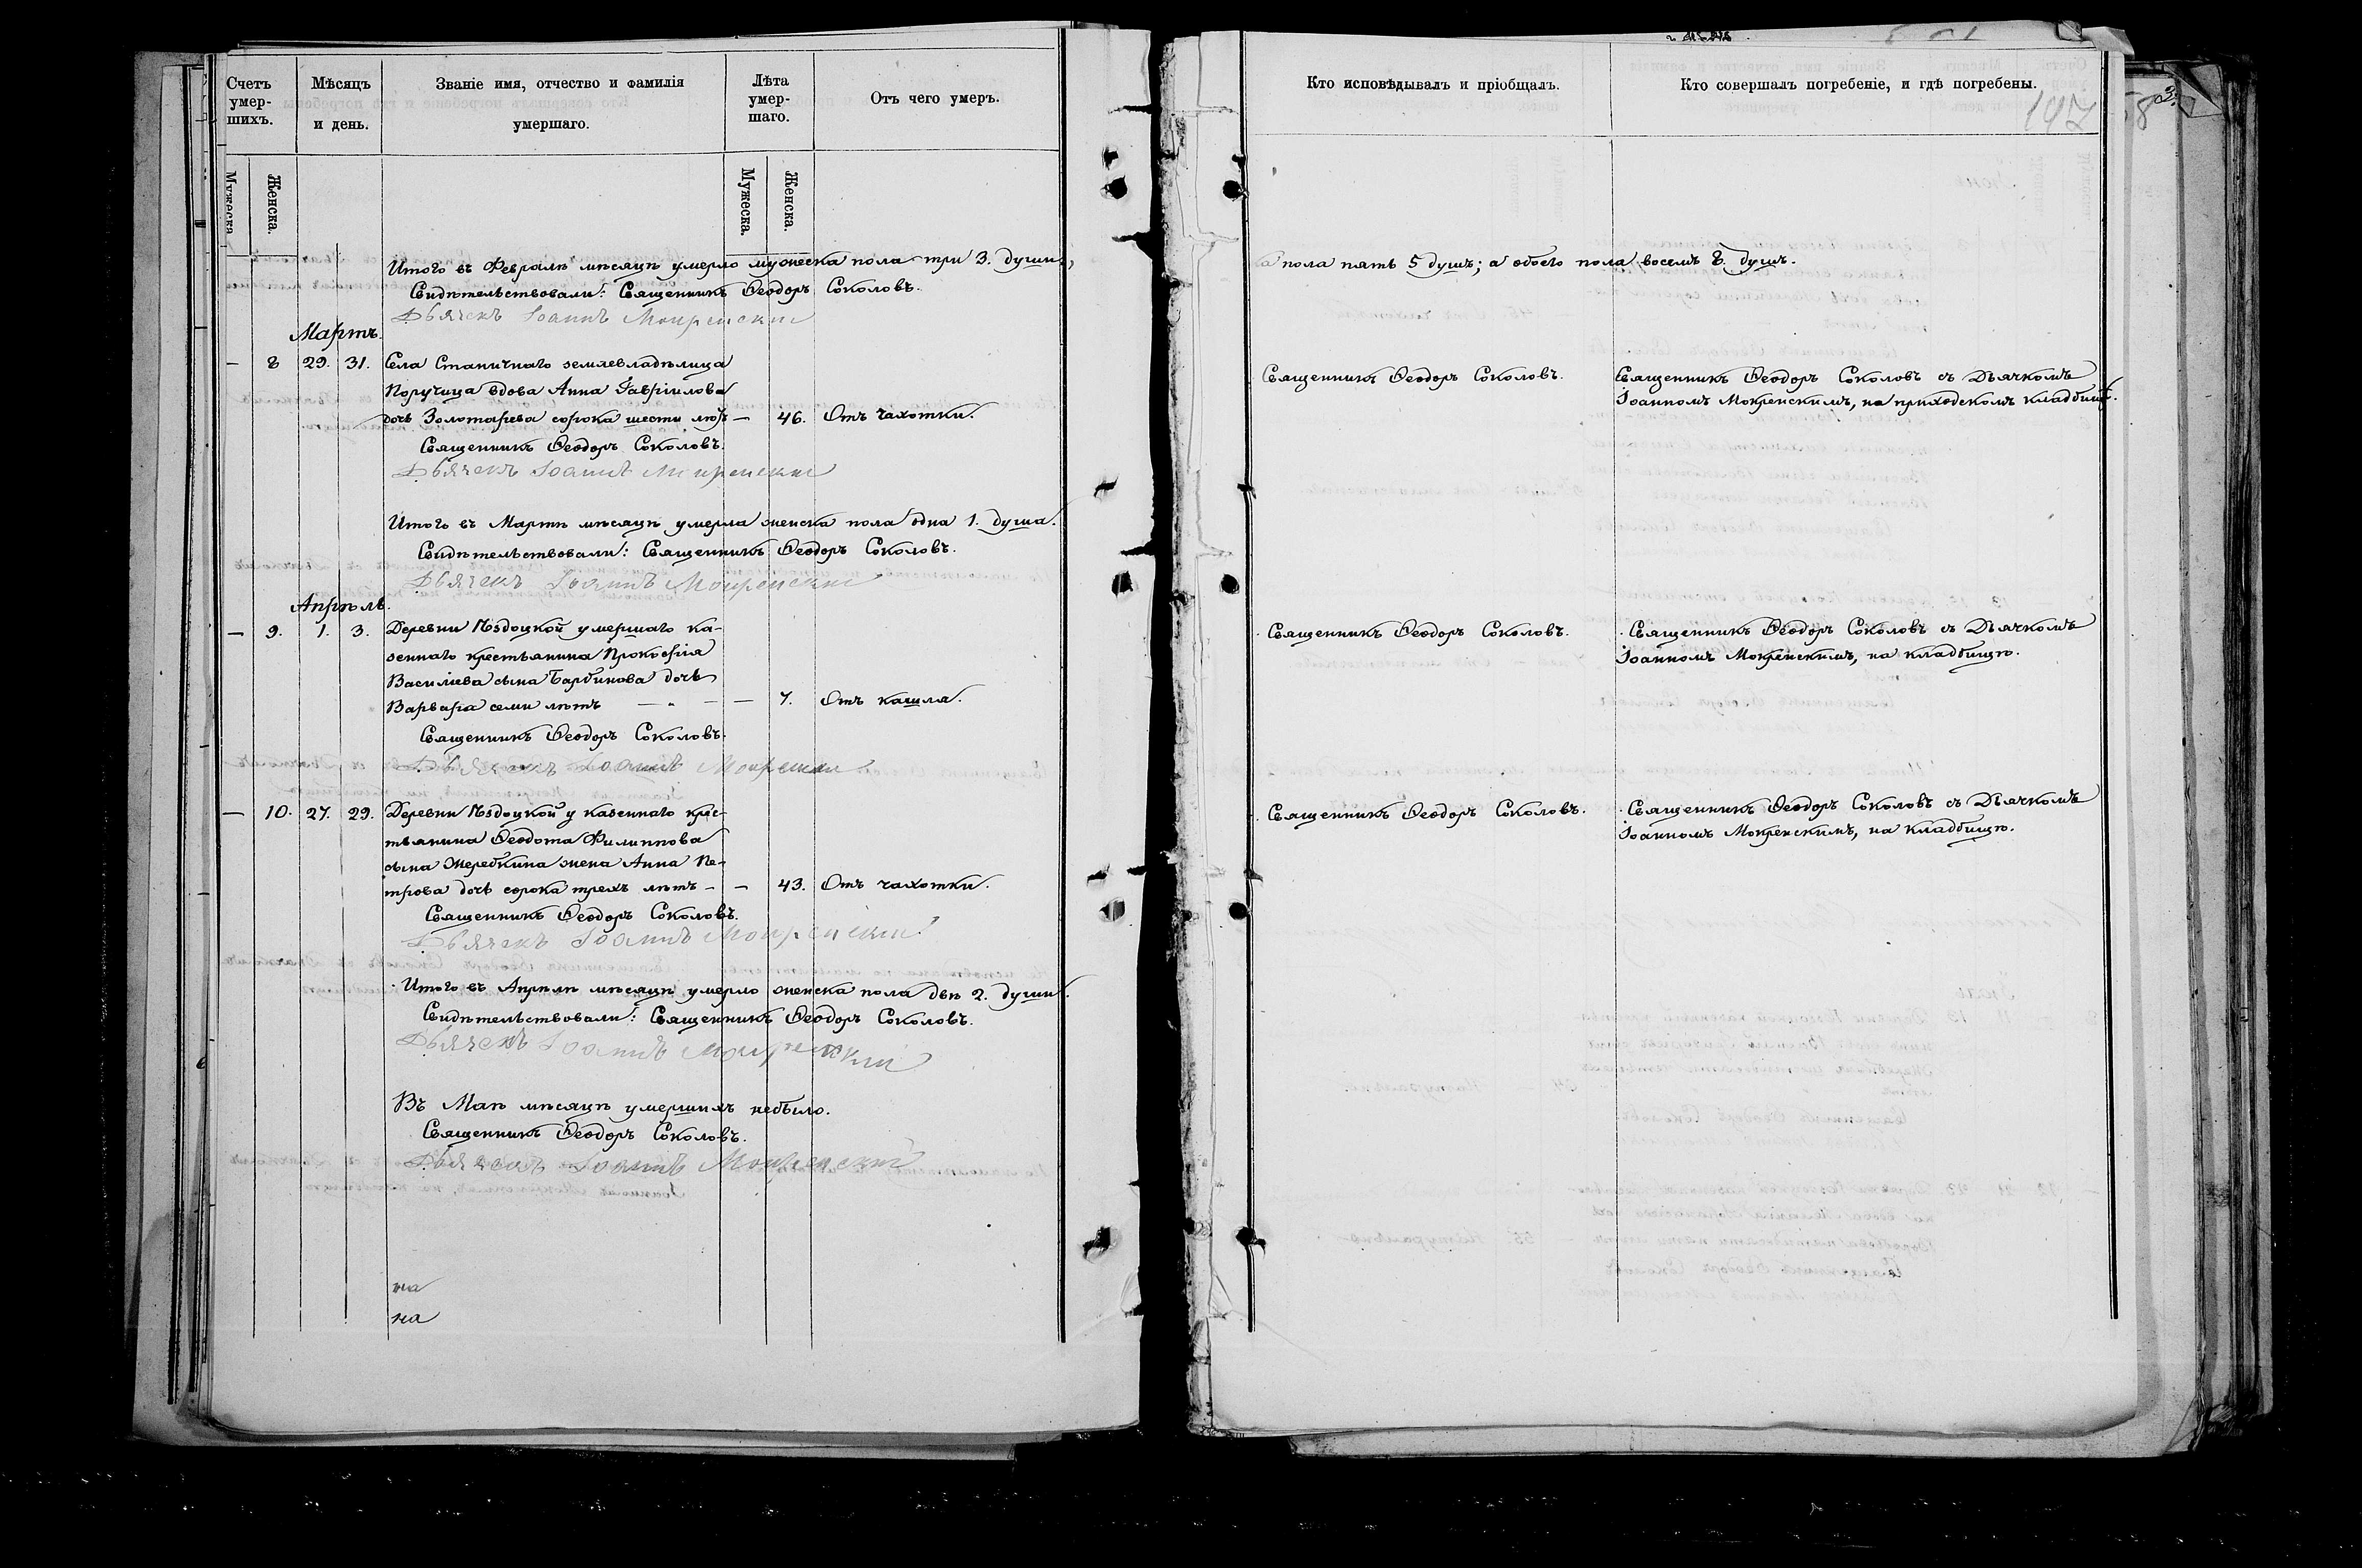 Счетъ умер-шихъ.
Мѣсяцъ и день.
Званіе имя, отчество и фамилія умершаго.
Лѣта умер-шаго.
Отъ чего умеръ.
Кто исповѣдывалъ и пріобщалъ.
Кто совершалъ погребеніе, и гдѣ погребены.
197
Мужеска
Женска.
Мужеска.
Женска.
Итого въ Февралѣ мѣсяцѣ умерло мужеска пола три 3. души,
пола пять 5 душъ; а обоего пола восемь 8. душъ.
Свидѣтельствовали: Священникъ Ѳеодоръ Соколовъ.
Дьячекъ Іоаннъ Мокренскій
Мартъ.
— 8 29. 31. Села Станичнаго землевладѣлица
Поручица вдова Анна Гавріилова
дочь Золотарева сорока шести лѣтъ — 46. Отъ чахотки.
Священникъ Ѳеодоръ Соколовъ.
Дьячекъ Іоаннъ Мокренскій
Священникъ Ѳеодоръ Соколовъ.
Священникъ Ѳеодоръ Соколовъ съ Дьячкомъ
Іоанномъ Мокренскимъ, на приходскомъ кладбищѣ.
Итого въ Мартѣ мѣсяцѣ умерла женска пола одна 1. душа.
Свидѣтельствовали: Священникъ Ѳеодоръ Соколовъ.
Дьячекъ Іоаннъ Мокренскій
Апрѣль.
— 9. 1. 3. Деревни Ѣздоцкой умершаго ка-
зеннаго крестьянина Прокофія
Василіева сына дочь
Варвара семи лѣтъ — — — 7. Отъ кашля.
Священникъ Ѳеодоръ Соколовъ.
Дьячекъ Іоаннъ Мокренскій
Священникъ Ѳеодоръ Соколовъ.
Священникъ Ѳеодоръ Соколовъ съ Дьячкомъ
Іоанномъ Мокренскимъ, на кладбищѣ.
— 10. 27. 29. Деревни Ѣздоцкой у казеннаго крес-
тьянина Ѳеодота Филиппова
сына Жеребкина жена Анна Пе-
трова дочь сорока трехъ лѣтъ - — 43. Отъ чахотки.
Священникъ Ѳеодоръ Соколовъ.
Дьячекъ Іоаннъ Мокренскій
Священникъ Ѳеодоръ Соколовъ.
Священникъ Ѳеодоръ Соколовъ съ Дьячкомъ
Іоанномъ Мокренскимъ, на кладбищѣ.
Итого въ Апрѣлѣ мѣсяцѣ умерло женска пола двѣ 2. души.
Свидѣтельствовали: Священникъ Ѳеодоръ Соколовъ.
Дьячекъ Іоаннъ Мокренскій
Въ Маѣ мѣсяцѣ умершихъ небыло.
Священникъ Ѳеодоръ Соколовъ.
Дьячекъ Іоаннъ Мокренскій
на
на